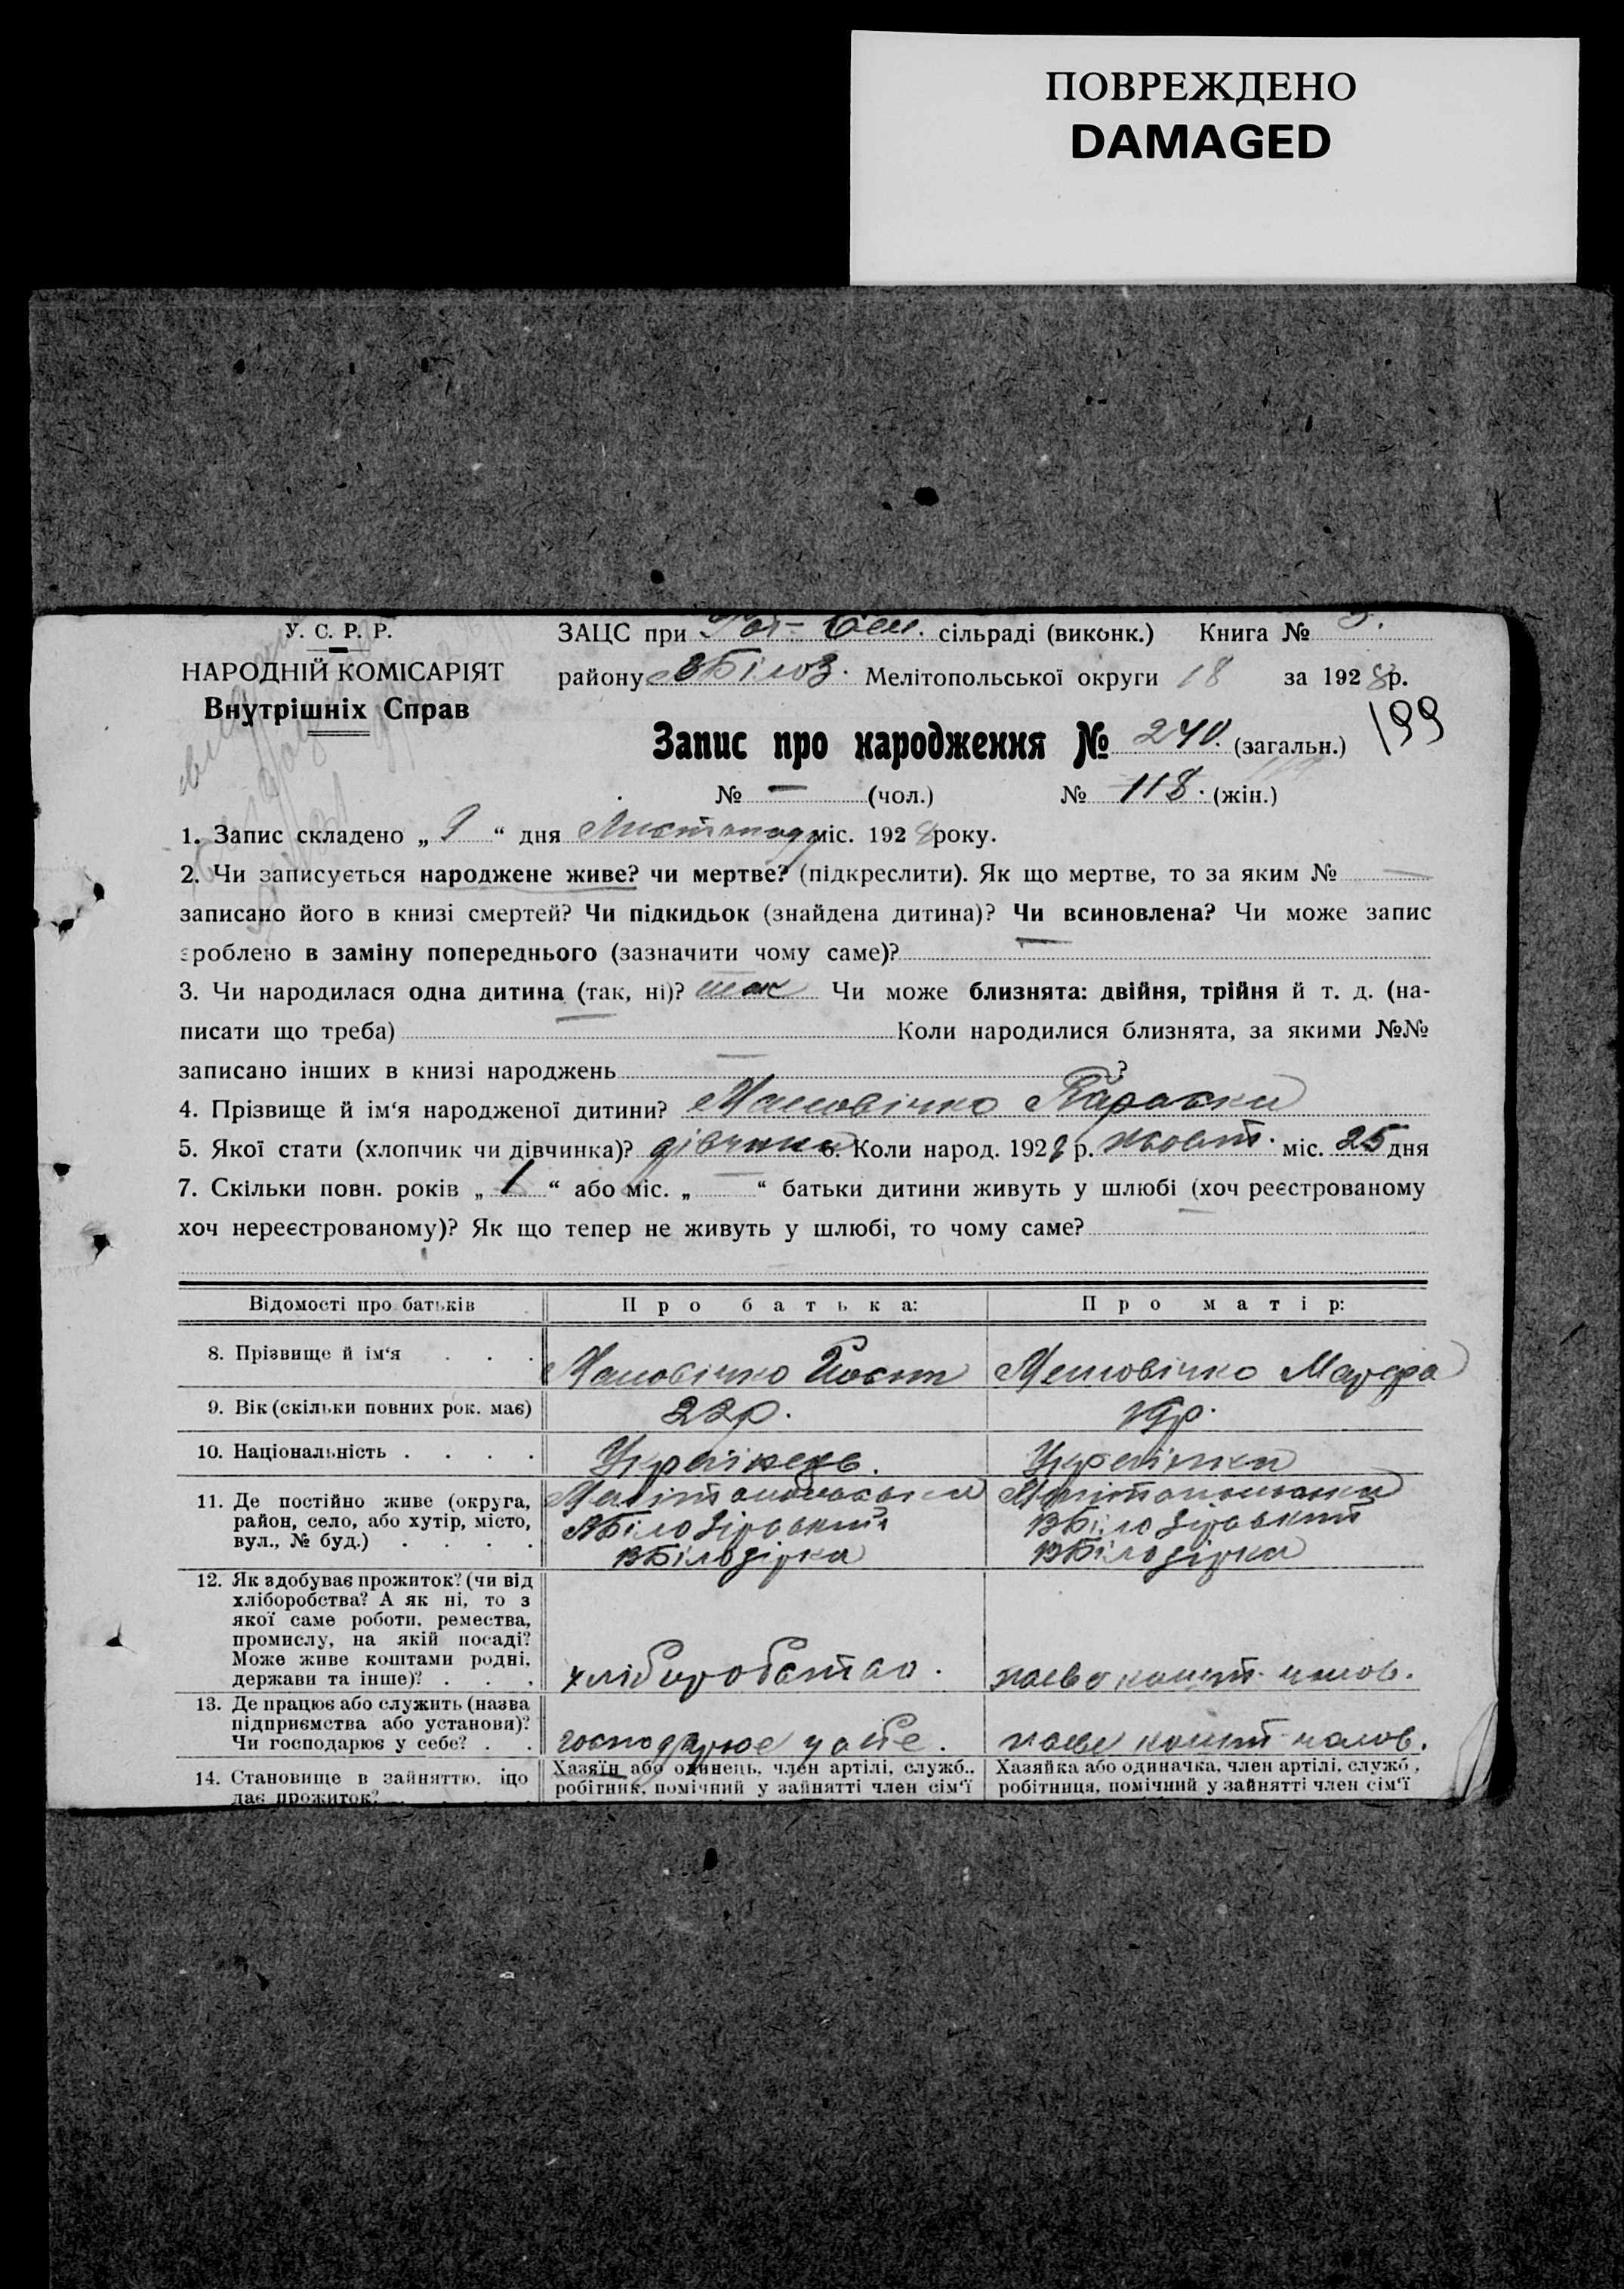 ПОВРЕЖДЕНО
DAMAGED
У. С. Р. Р.
НАРОДНІЙ КОМІСАРІЯТ
Внутрішніх Справ
ЗАЦС при сільраді (виконк.) Книга № 5.
району ВБілоз. Мелітопольської округи 18 за 1928 р.
199
Запис про народження № 240. (загальн.)
№ — (чол.) № 118. (жін.)
1. Запис складено „ 9 “ дня Листопад міс. 1928 року.
2. Чи записується народжене живе? чи мертве? (підкреслити). Як що мертве, то за яким № —
записано його в книзі смертей? Чи підкидьок (знайдена дитина)? Чи всиновлена? Чи може запис
зроблено в заміну попереднього (зазначити чому саме)? —
3. Чи народилася одна дитина (так, ні)? так Чи може близнята: двійня, трійня й т. д. (на-
писати що треба) — Коли народилися близнята, за якими №№
записано інших в книзі народжень — ?
4. Прізвище й ім‘я народженої дитини? Параски
5. Якої стати (хлопчик чи дівчинка)? дівчинка 6. Коли народ. 1928 р. жовт. міс. 25 дня
7. Скільки повн. років „ 1 “ або міс. „ — “ батьки дитини живуть у шлюбі (хоч реєстрованому
хоч нереєстрованому)? Як що тепер не живуть у шлюбі, то чому саме?
Відомості про батьків Про батька: Про матір:
8. Прізвище й ім‘я . . . Марфа
9. Вік (скільки повних рок. має) 22р. 19р.
10. Національність . . . . Українець. Українка
11. Де постійно живе (округа, Мелітопольська Мелітопольська
район, село, або хутір, місто, ВБілозірський ВБілозірський
вул., № буд.) . . . . ВБілозірка ВБілозірка
12. Як здобуває прожиток? (чи від
хліборобства? А як ні, то з
якої саме роботи, ремества,
промислу, на якій посаді?
Може живе коштами родні,
держави та інше)? . . . хліборобство. кошт. чолов.
13. Де працює або служить (назва
підприємства або установи)?
Чи господарює у себе? . . господарює у себе. кошт чолов.
14. Становище в зайняттю, що Хазяїн або одинець, член артілі, служб., Хазяйка або одиначка, член артілі, служб.,
дає прожиток? робітник, помічний у зайнятті член сім‘ї робітниця, помічний у зайнятті член сім‘ї